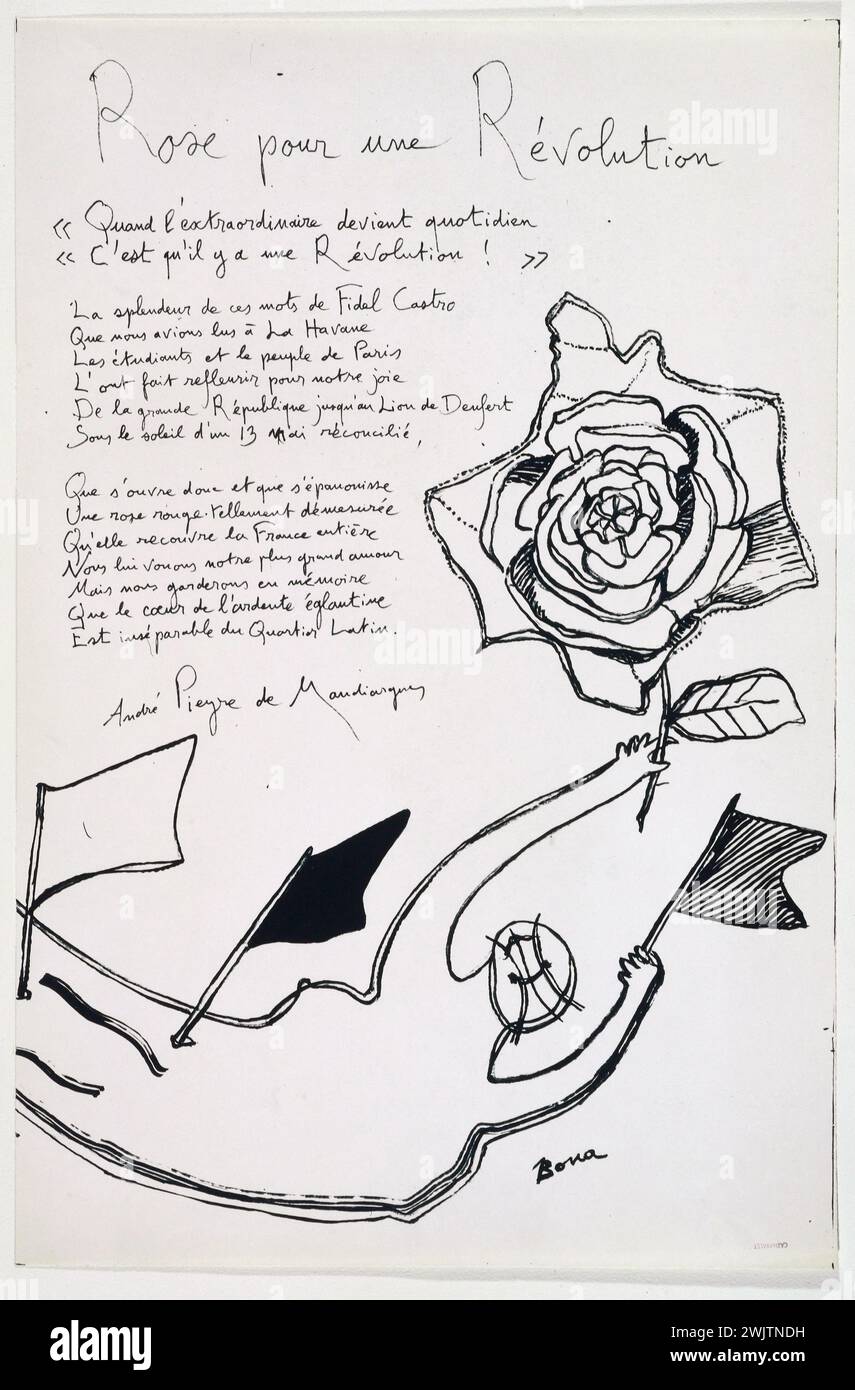 Rose pour une Révolution
« Quand l'extraordinaire devient quotidien
« C'est qu'il y a une Révolution ! »
La splendeur de ces mots de Fidel Castro
Que nous avions lus à La Havane
Les étudiants et le peuple de Paris
L'ont fait refleurir pour notre joie
De la grande République jusqu'au Lion de Denfert
Sous le soleil d'un 13 Mai réconcilié,
Que s'ouvre donc et que s'épanouisse
Une rose rouge tellement démesurée
Qu'elle recouvre la France entière
Nous lui vouons notre plus grand amour
Mais nous garderons en mémoire
Que le cœur de l'ardente églantine
Est inséparable du Quartier Latin.
André Pieyre de Mandiargues
Bona
alamy
Image ID: 2WJTNDH
www.alamy.com